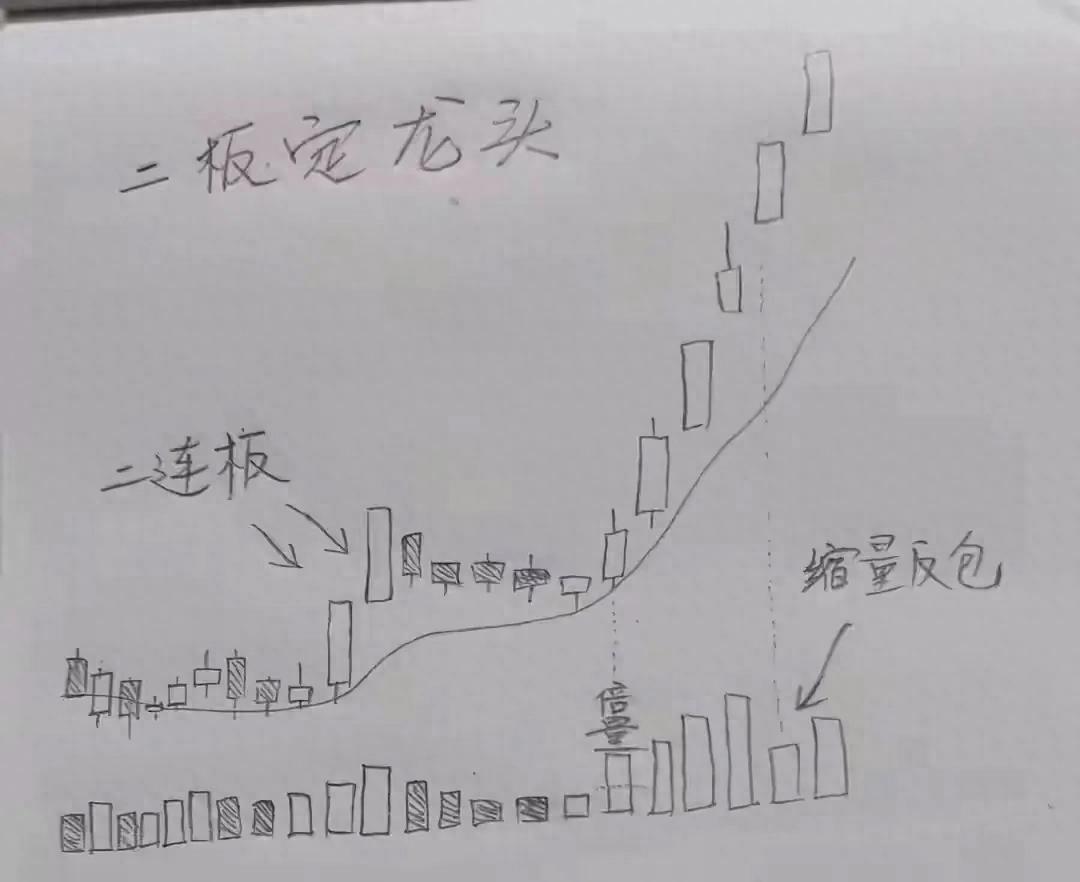 二板定龙头
二连板
缩量反包
倍量